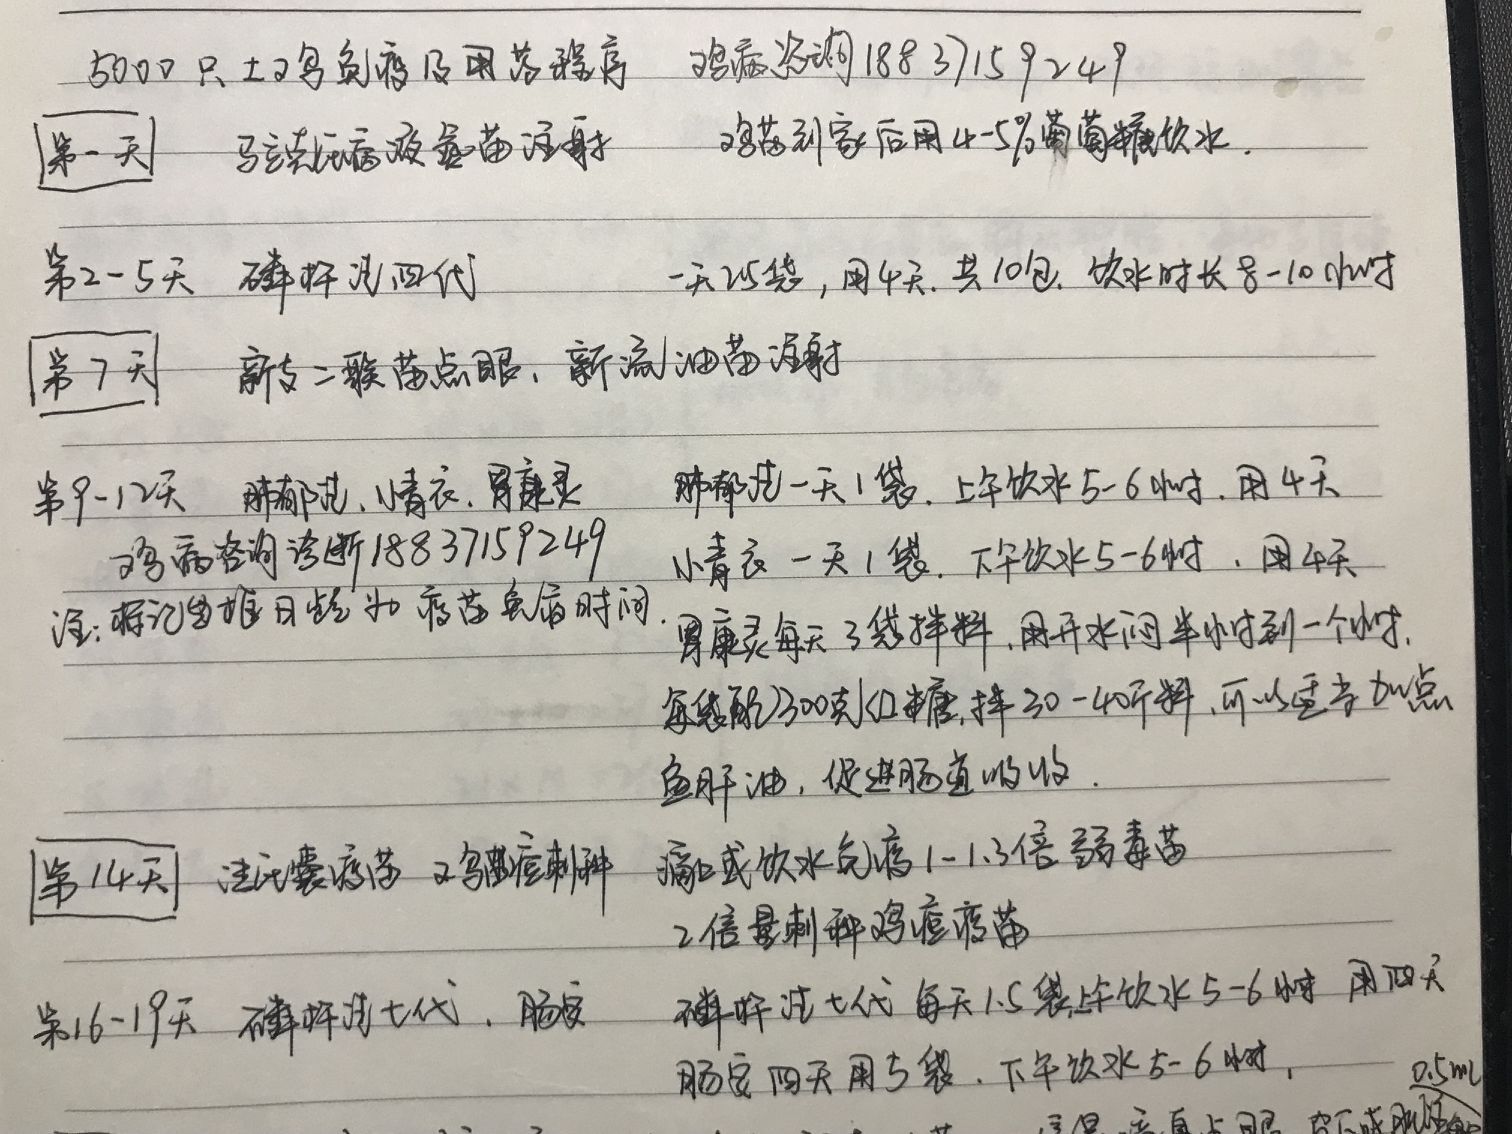 5000只土鸡免疫及用药程序 鸡病咨询18837159249
第一天 马立克氏病液氮苗注射 鸡苗到家后用4-5%葡萄糖饮水.
第2-5天 磷杆洁四代 一天2.5袋,用4天.共10包.饮水时长8-10小时
第7天 新支二联苗点眼、新流油苗注射
第9-12天 肺郁洁、小青衣、胃康灵 肺郁洁一天1袋.上午饮水5-6小时.用4天
鸡病咨询诊断18837159249 小青衣一天1袋.下午饮水5-6小时.用4天
注:标记的日龄为疫苗免疫时间. 胃康灵每天3袋拌料.用开水闷半小时到一个小时.
每袋配300克红糖,拌30-40斤料.可以适当加点
鱼肝油,促进肠道吸收.
第14天 法氏囊疫苗 鸡痘刺种 滴口或饮水免疫1-1.3倍弱毒苗
2倍量刺种鸡痘疫苗
第16-19天 磷杆洁七代.肠安 磷杆洁七代每天1.5袋上午饮水5-6小时 用四天
肠安四天用5袋.下午饮水5-6小时.
0.5ml